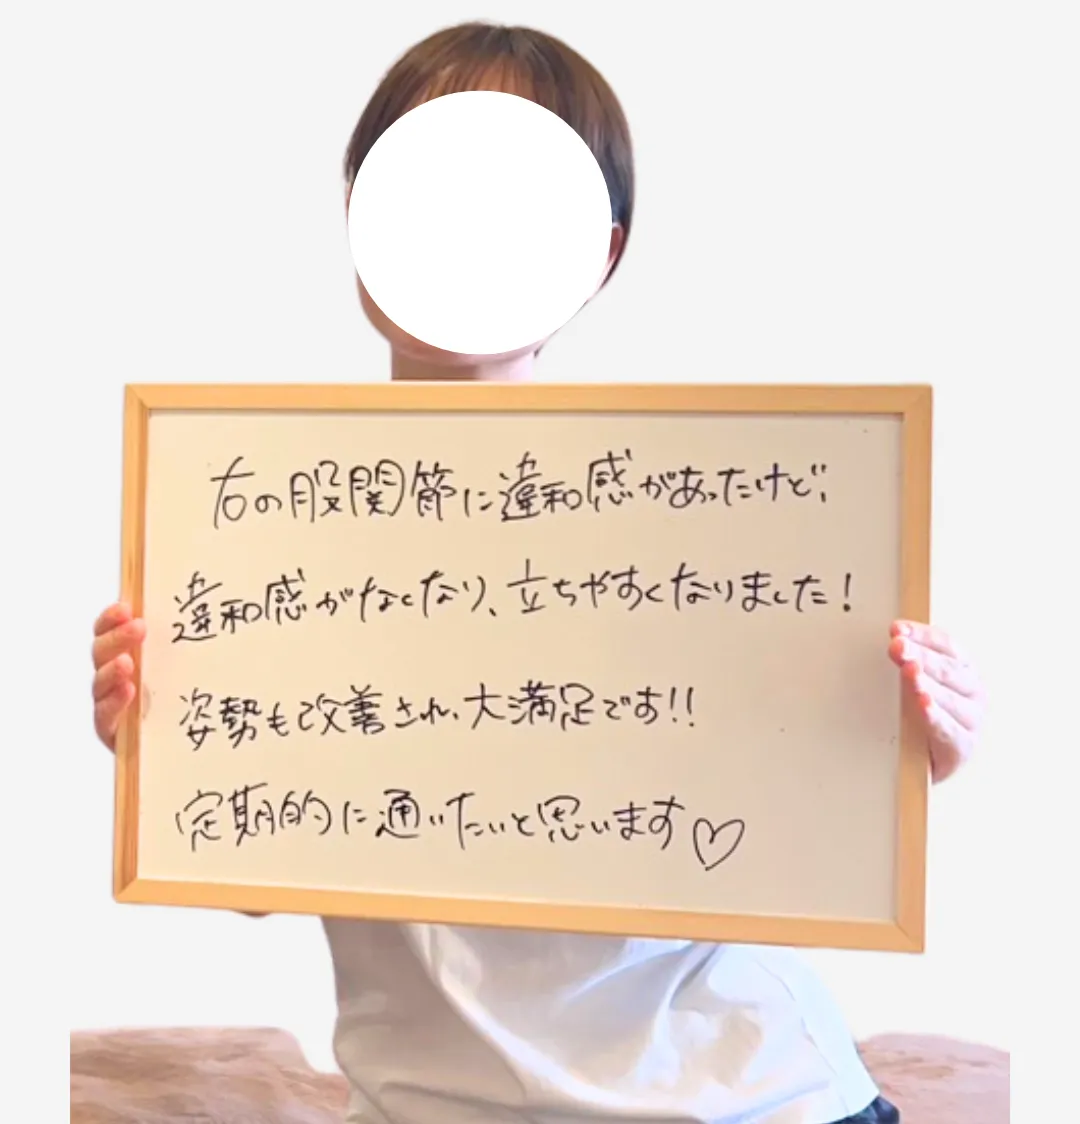 右の股関節に違和感があったけど、
違和感がなくなり、立ちやすくなりました！
姿勢も改善され、大満足です!!
定期的に通いたいと思います♡